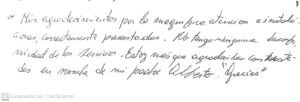 * Mis agradecimientos por la magnifica atencion e instalaciones, correctamente presentadas. No tengo ninguna disconformidad de los servicios. Estoy muy agradecidos con ustedes en nombre de mi padre Alberto. "Gracias"
Escaneado con CamScanner